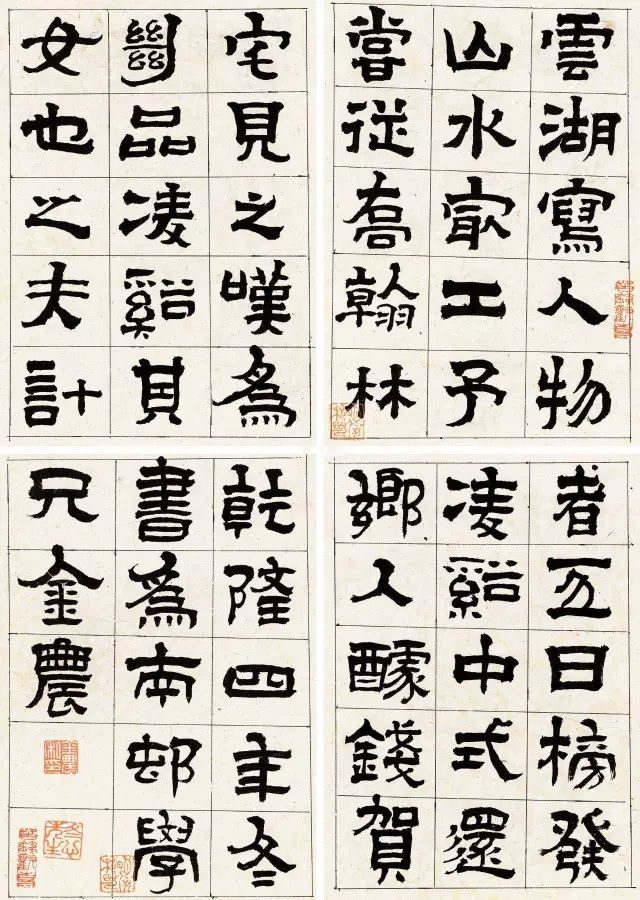 雲湖寫人物
山水㝡工予
嘗從喬翰林
宅見之嘆爲
𢇍品凌谿其
女也之夫計
者五日榜發
凌谿中式還
鄉人醵錢賀
乾隆四年冬
書爲南邨學
兄金農